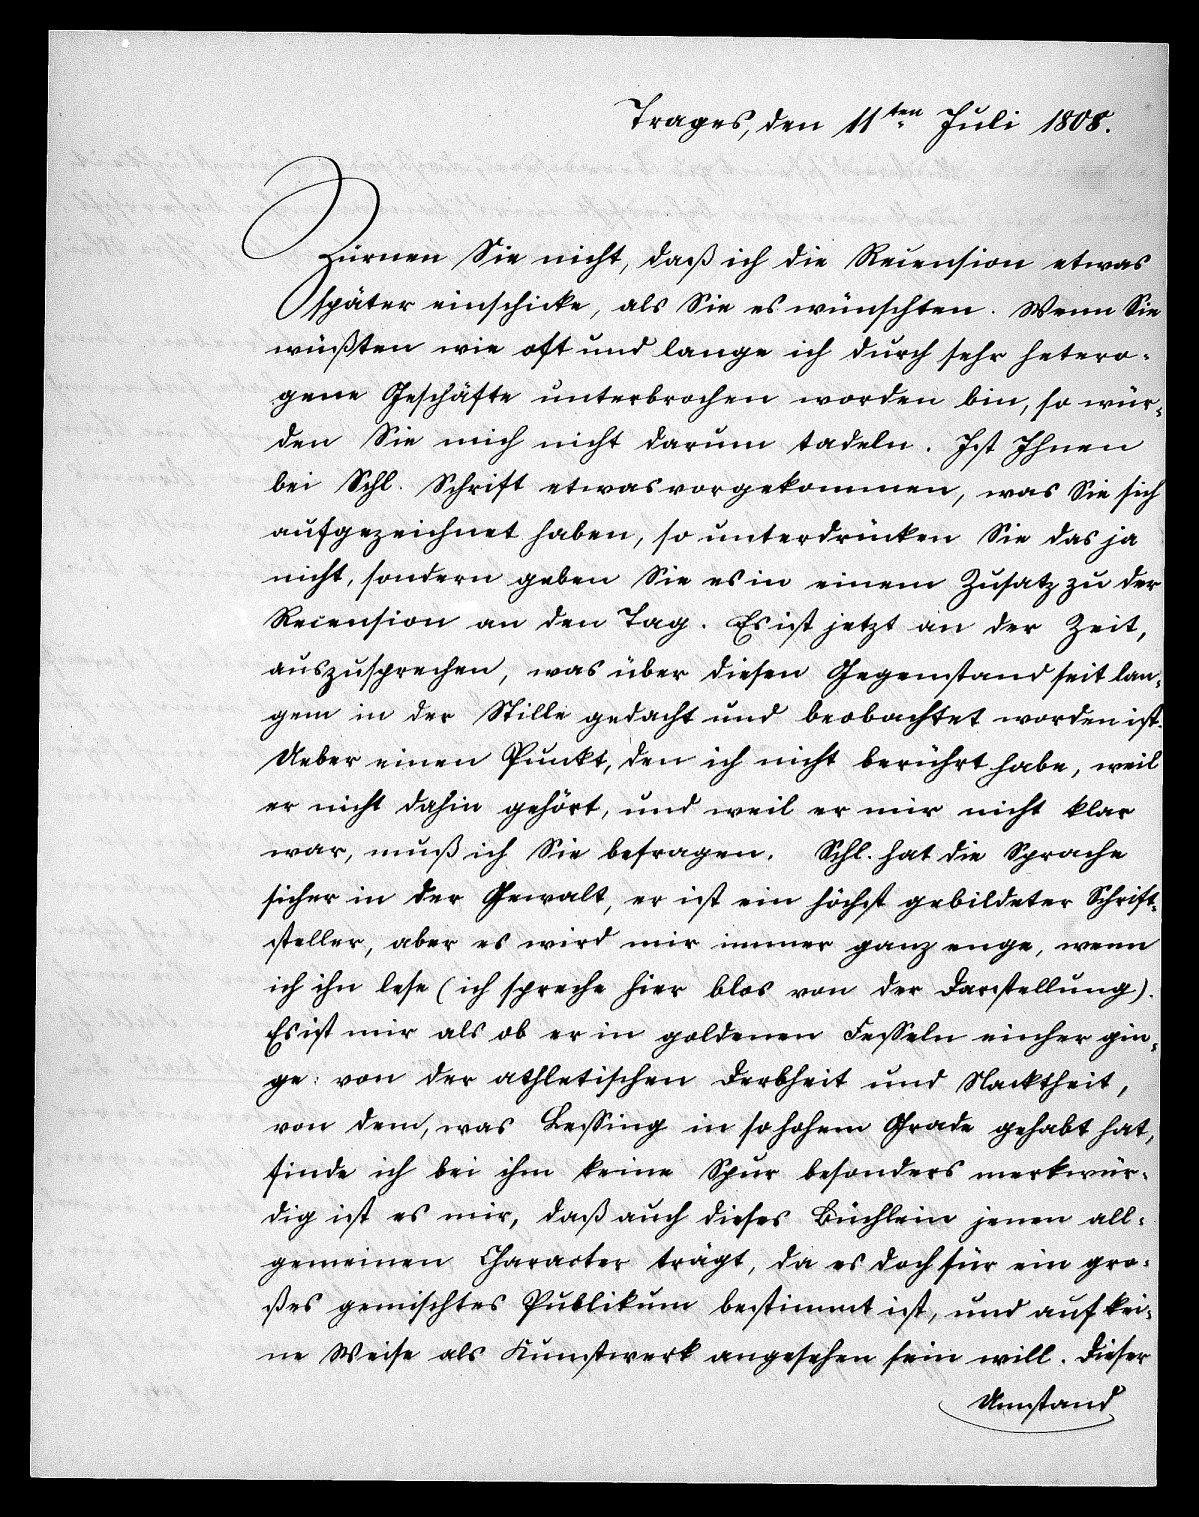 Trages, den 11ten Juli 1808.
Zürnen Sie nicht, daß ich die Recension etwas
später einschicke, als Sie es wünschten. Wenn Sie
wüßten wie oft und lange ich durch sehr hetero-
gene Geschäfte unterbrochen worden bin, so wür-
den Sie mich nicht darum tadeln. Ist Ihnen
bei Schl. Schrift etwas vorgekommen, was Sie sich
aufgezeichnet haben, so unterdrücken Sie das ja
nicht, sondern geben Sie es in einem Zusatz zu der
Recension an den Tag. Es ist jetzt an der Zeit,
auszusprechen, was über diesen Gegenstand seit lan-
gem in der Stille gedacht und beobachtet worden ist.
Ueber einen Punkt, den ich nicht berührt habe, weil
er nicht dahin gehört, und weil er mir nicht klar
war, muß ich Sie befragen. Schl. hat die Sprache
sicher in der Gewalt, er ist ein höchst gebildeter Schrift-
steller, aber es wird mir immer ganz enge, wenn
ich ihn lese (ich spreche hier blos von der Darstellung).
Es ist mir als ob er in goldenen Fesseln einher gin-
ge: von der athletischen Derbheit und Nacktheit,
von dem, was Lessing in so hohem Grade gehabt hat,
finde ich bei ihm keine Spur besonders merkwür-
dig ist es mir, daß auch dieses Büchlein jenen all-
gemeinen Character trägt, da es doch für ein gro-
ßes gemischtes Publikum bestimmt ist, und auf kei-
ne Weise als Kunstwerk angesehen sein will. Dieser
Umstand